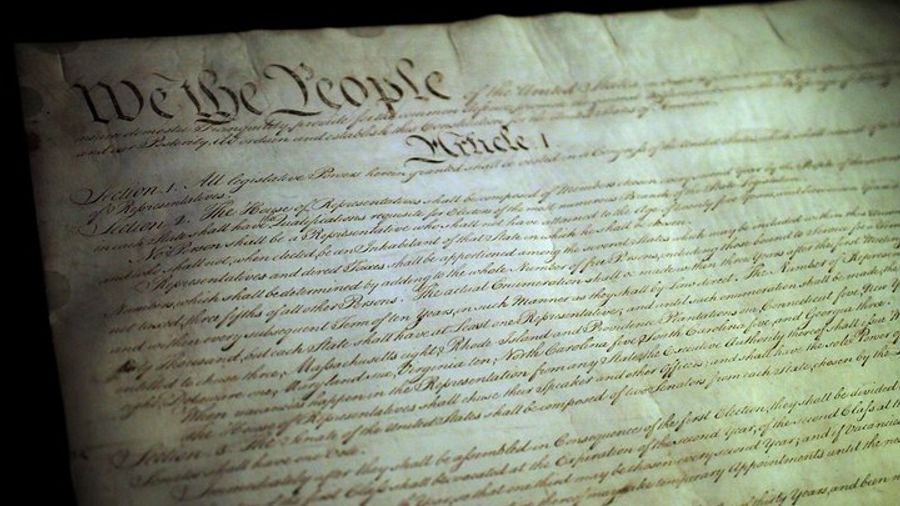 We the People of the United States
insure domestic Tranquility, provide for the common
and our Posterity, do ordain and establish this Constitution for the United States of America.
Article. I.
Section. 1. All legislative Powers herein granted shall be vested in a Congress of the United States, which shall consist of
of Representatives.
Section. 2. The House of Representatives shall be composed of Members chosen every second Year by the People of the several
in each State shall have Qualifications requisite for Electors of the most numerous Branch of the State Legislature.
No Person shall be a Representative who shall not have attained to the Age of twenty five Years, and been seven Years a
and who shall not, when elected, be an Inhabitant of that State in which he shall be chosen.
Representatives and direct Taxes shall be apportioned among the several States which may be included within this Union,
Numbers, which shall be determined by adding to the whole Number of free Persons, including those bound to Service for a Term
not taxed, three fifths of all other Persons. The actual Enumeration shall be made within three Years after the first Meeting
and within every subsequent Term of ten Years, in such Manner as they shall by Law direct. The Number of Representatives
thirty Thousand, but each State shall have at Least one Representative; and until such enumeration shall be made, the
entitled to chuse three, Massachusetts eight, Rhode Island and Providence Plantations one, Connecticut five, New York
eight, Delaware one, Maryland six, Virginia ten, North Carolina five, South Carolina five, and Georgia three.
When vacancies happen in the Representation from any State, the Executive Authority thereof shall issue
The House of Representatives shall chuse their Speaker and other Officers; and shall have the sole Power of
Section. 3. The Senate of the United States shall be composed of two Senators from each State, chosen by the
Senator shall have one Vote.
Immediately after they shall be assembled in Consequence of the first Election, they shall be divided
of the first Class shall be vacated at the Expiration of the second Year, of the second Class at the
Year, so that one third may be chosen every second Year; and if Vacancies
thereof may make temporary Appointments until the
of thirty Years, and been